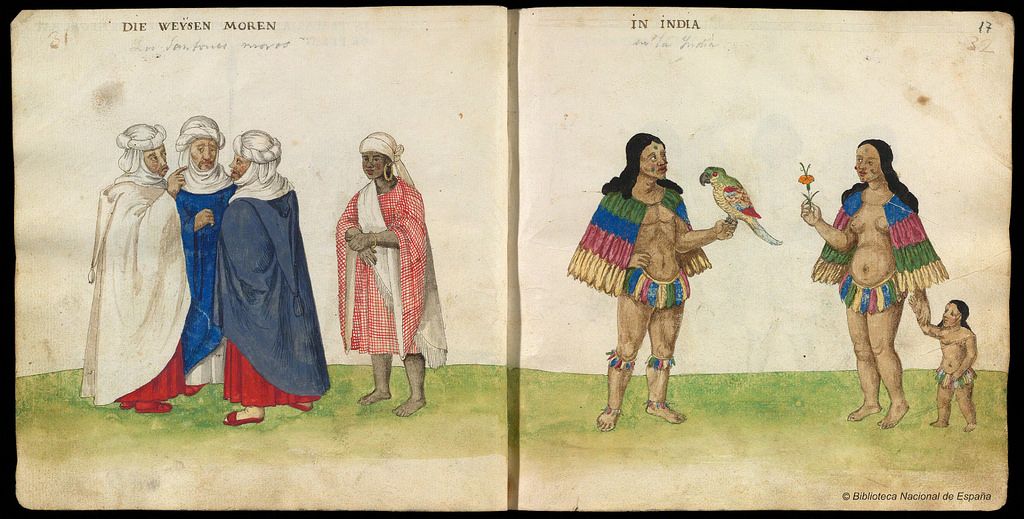 DIE WEYSEN MOREN
31
Los Santones moros
IN INDIA
en la India
17
32
© Biblioteca Nacional de España